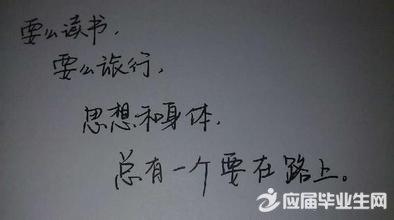 要么读书,
要么旅行,
思想和身体,
总有一个要在路上。
应届毕业生网